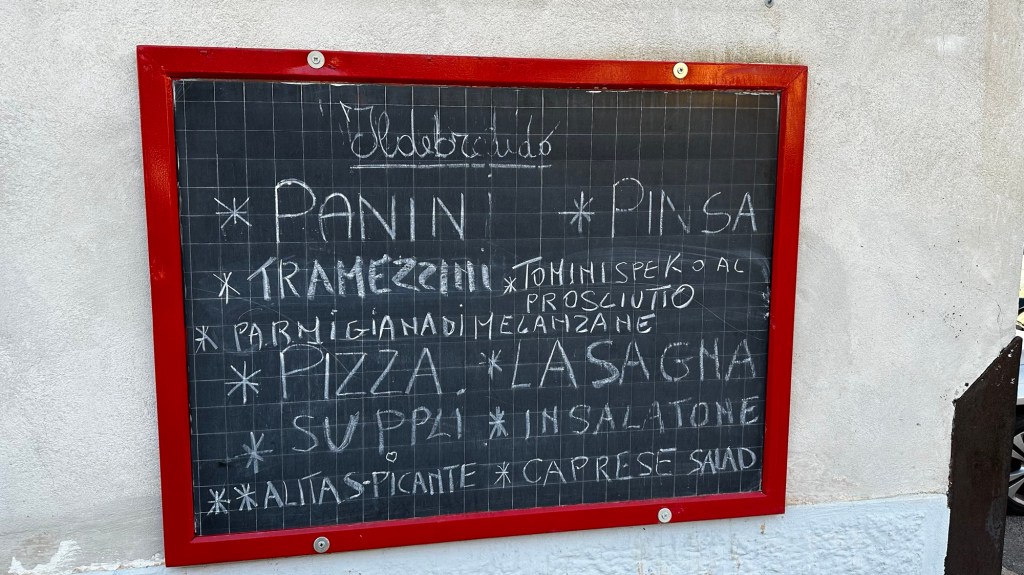 * PANINI * PINSA
* TRAMEZZINI * TOMINI SPEK O AL
PROSCIUTTO
* PARMIGIANA DI MELANZANE
* PIZZA. * LASAGNA
* SUPPLI * INSALATONE
** ALITAS-PICANTE * CAPRESE SALAD